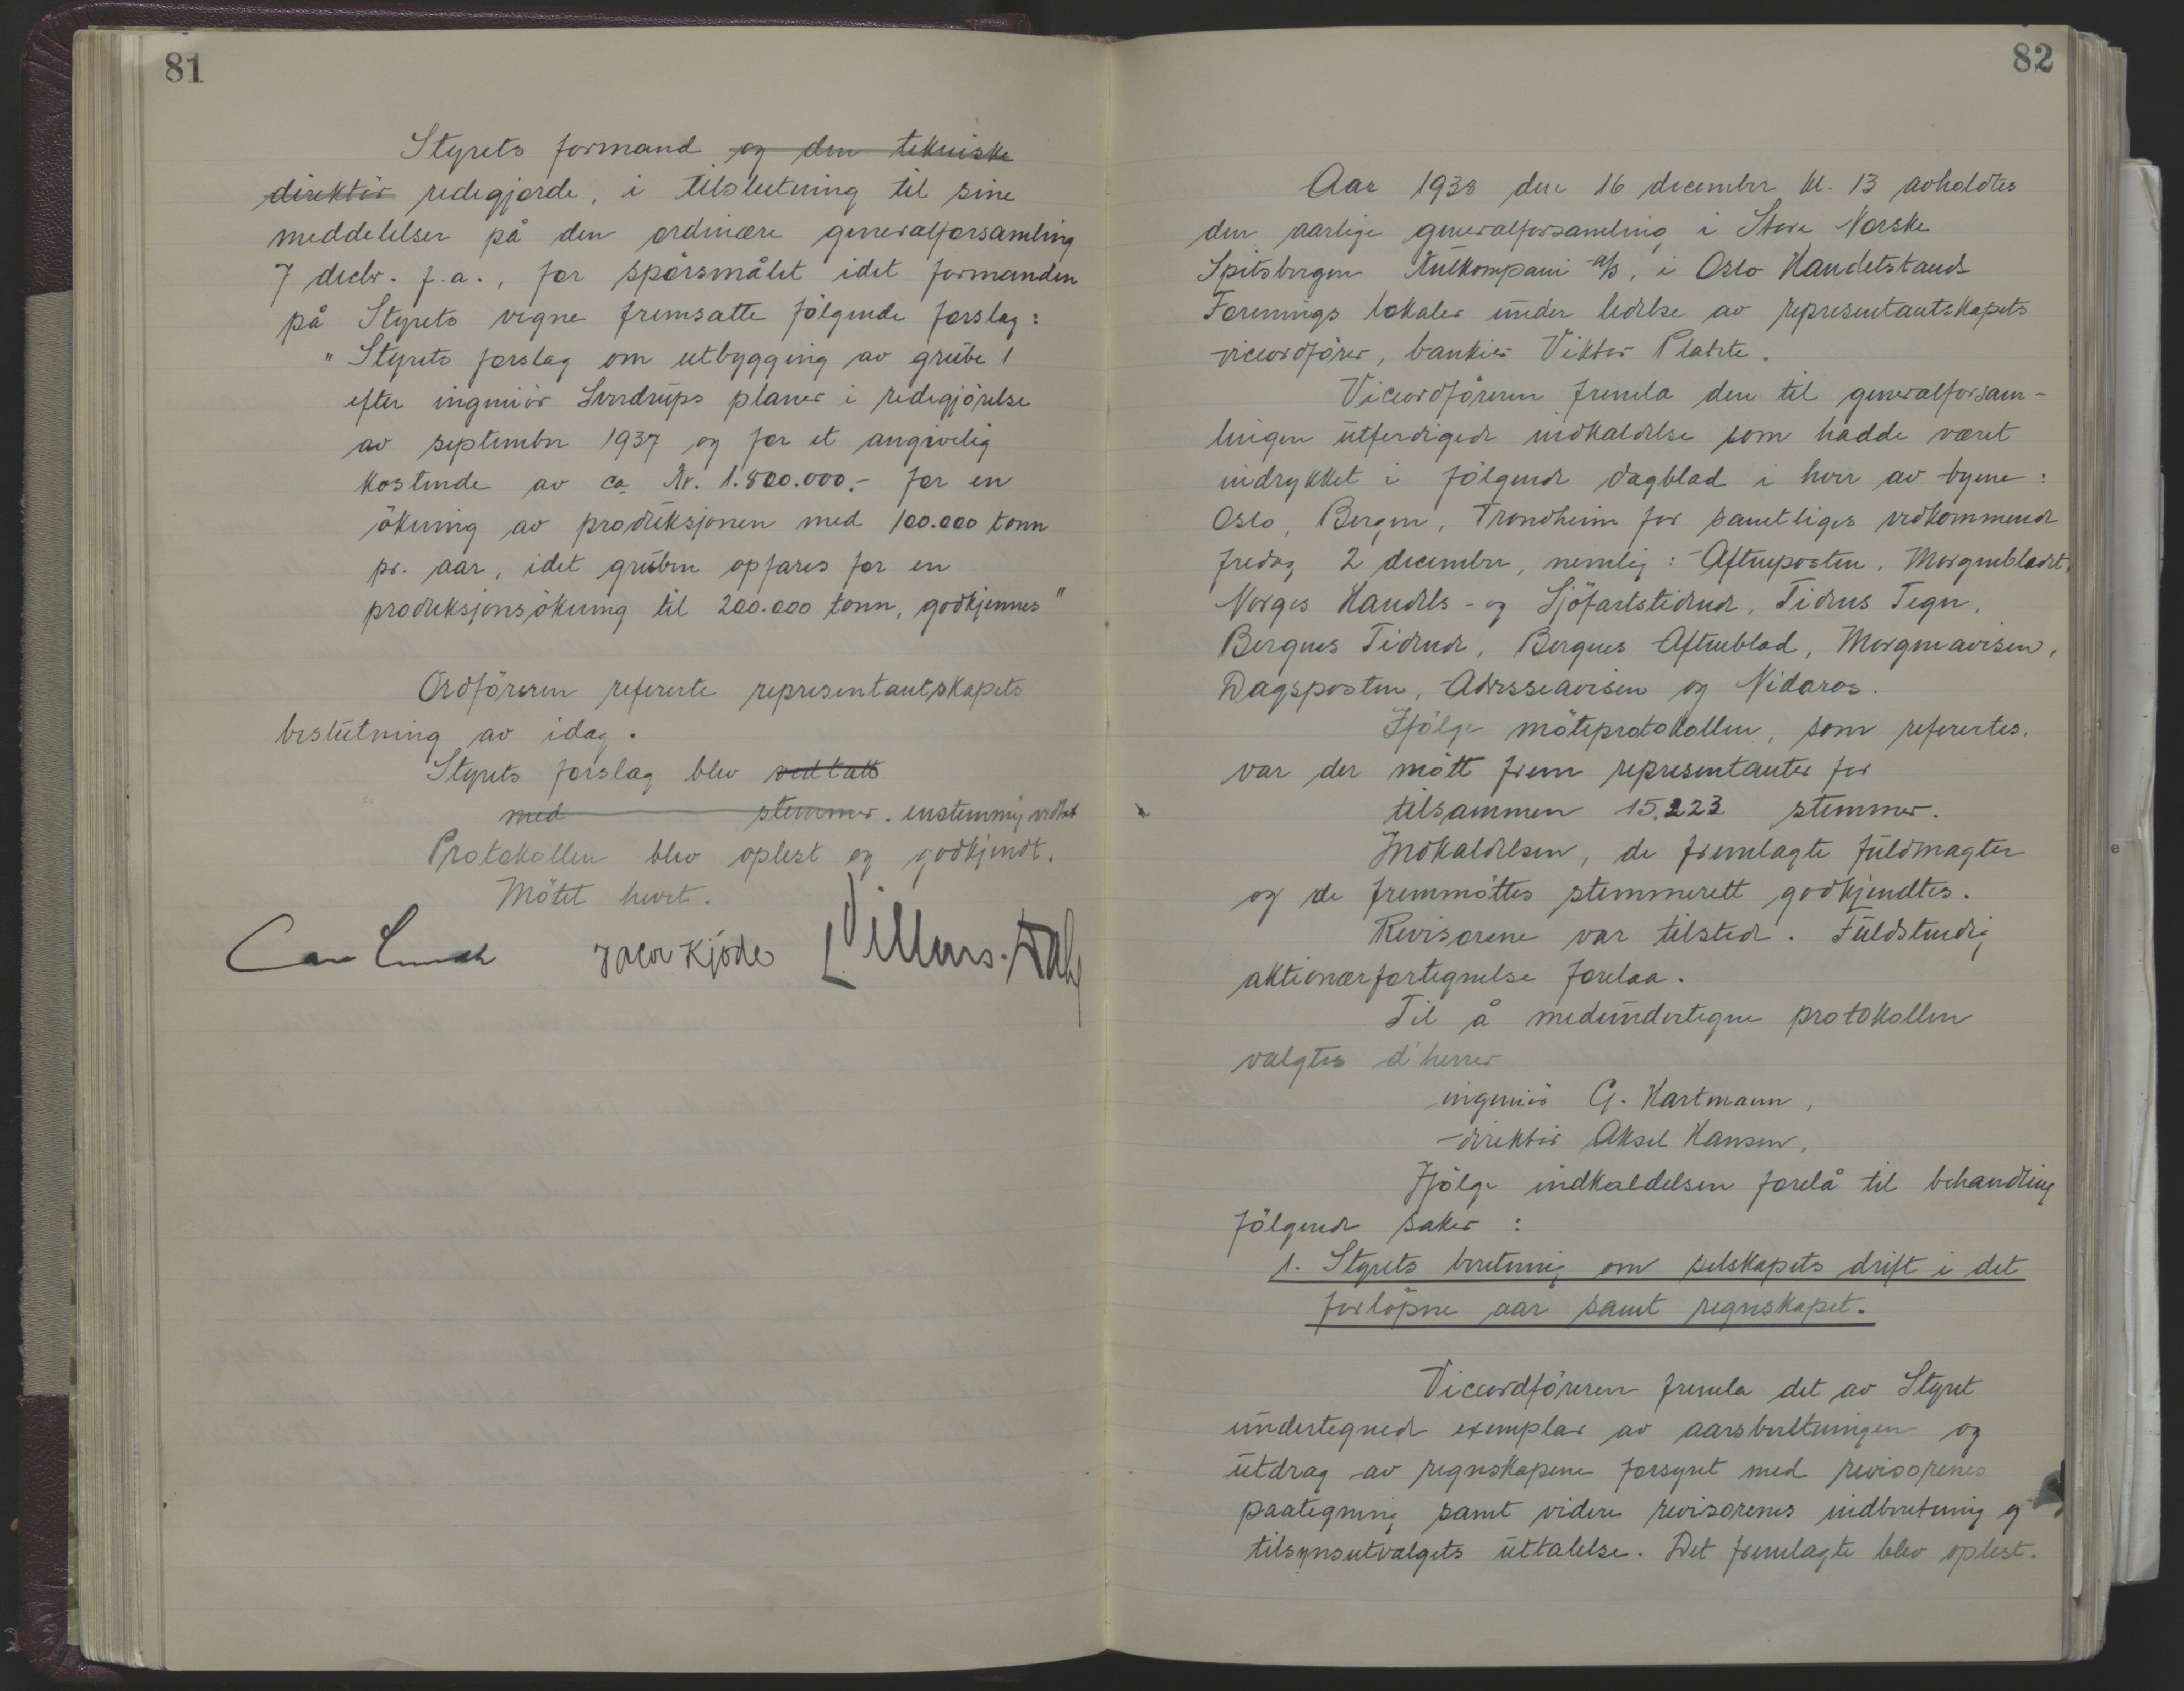 81
Styrets formand og den tekniske
direktör redegjorde, i tilslutning til sine
meddelelser på den ordinære generalforsamling
7 decbr. f.a., for spörsmålet idet formanden
på Styrets vegne fremsatte fölgende forslag:
"Styrets forslag om utbygging av grube 1
efter ingeniör Sverdrups planer i redegjörelse
av september 1937 og for et angivelig
kostende av ca Kr. 1.800.000.- for en
ökning av produksjonen med 100.000 tonn
pr. aar, idet gruben opfares for en
produksjonsökning til 200.000 tonn, godkjennes"
Ordföreren refererte representantskapets
beslutning av idag.
Styrets forslag blev vedtatt
med stemmer. enstemmig vedtat
Protokollen blev oplest og godkjendt.
Mötet hevet.
Jacob Kjöde
82
Aar 1938 den 16 december kl. 13 avholdtes
den aarlige generalforsamling i Store Norske
Spitsbergen Kulkompani A/S, i Oslo Handelstands
Forenings lokaler under ledelse av representantskapets
viceordförer, bankier Viktor Plahte.
Viceordföreren fremla den til generalforsam-
lingen utferdigede indkaldelse som hadde været
indrykket i fölgende dagblad i hver av byene:
Oslo, Bergen, Trondheim for samtliges vedkommende
fredag 2 december, nemlig: Aftenposten, Morgenbladet,
Norges Handels- og Sjöfartstidende, Tidens Tegn,
Bergens Tidende, Bergens Aftenblad, Morgenavisen,
Dagsposten, Adresseavisen og Nidaros.
Ifölge möteprotokollen, som refertes,
var der mött frem representanter for
tilsammen 15.223 stemmer.
Indkaldelsen, de fremlagte fuldmagter
og de fremmöttes stemmerett godkjendtes.
Revisorene var tilstede. Fuldstendig
aktionærfortegnelse forelaa.
Til å medundertegne protokollen
valgtes d'herrer
ingeniör G. Hartmann,
direktör Aksel Hansen,
Ifölge indkaldelsen forelå til behandling
fölgende saker:
1. Styrets beretning om selskapets drift i det
forlöpne aar samt regnskapet.
Viceordföreren fremla det av Styret
undertegnede exemplar av aarsberetningen og
utdrag av regnskapene forsynet med revisorenes
paategning samt videre revisorenes indberetning og
tilsynsutvalgets uttalelse. Det fremlagte blev oplest.